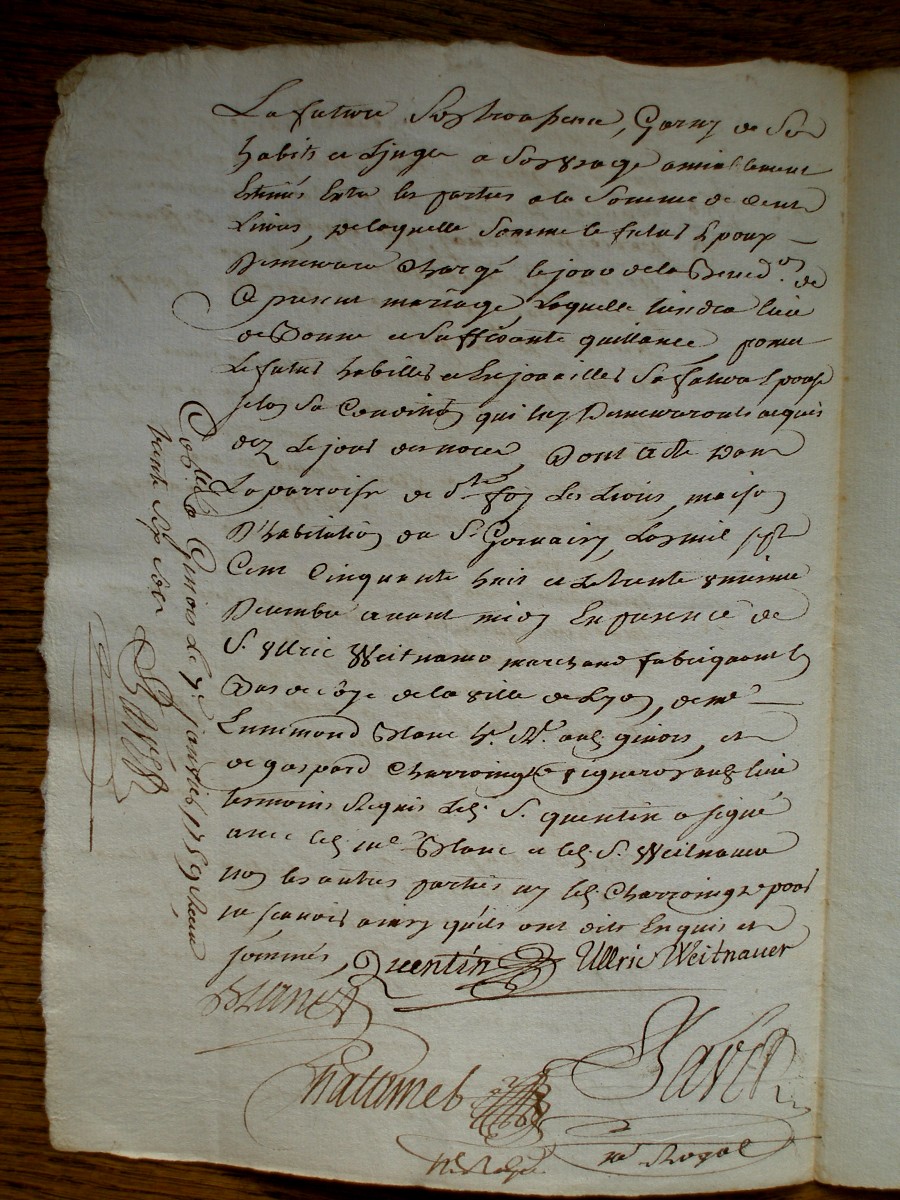 La future Garny de Ses
habits et linge a Son Usage amiablement
Estimés Entre les parties a la Somme de Cent
Livres, de laquelle Somme le futur Epoux
Demeurera Chargé le jour de la Bened.on de
Ce present mariage, Laquelle tiendra lieu
de Bonne et Suffisante quittance, pourra
Le futur habiller et Enjoailler Sa future Epouse
selon Sa Condition qui luy Demeureront acquis
dez Le jour des noces, Dont acte Dans
La parroisse de Ste foy Les Lions, maison
D'habitation du Sr. Gervaix, L'an mil sept
Cent Cinquante huit et Le trente unieme
Decembre avant midy En presence de
Sr. Ullric Weitnawer marchand fabriquant
Bas de soye de la Ville de Lyon, de me
Ennemond Blanc audt ginois, et
de gaspard Charroing Vigneron audt lieu
temoins Requis Led. Sr. quentin a signé
avec led. me Blanc et led. Sr. Weitnawer
non les autres parties ny led. Charroing pour
ne sçavoir ainsy qu'ils ont dit Enquis et
sommés, Quentin Ullric Weitnauer
Blanc
Chatarnet Raver
nre Royal
Collé a Ginois le 9e janvier 1759 Receu
trante Sept Sols Raver